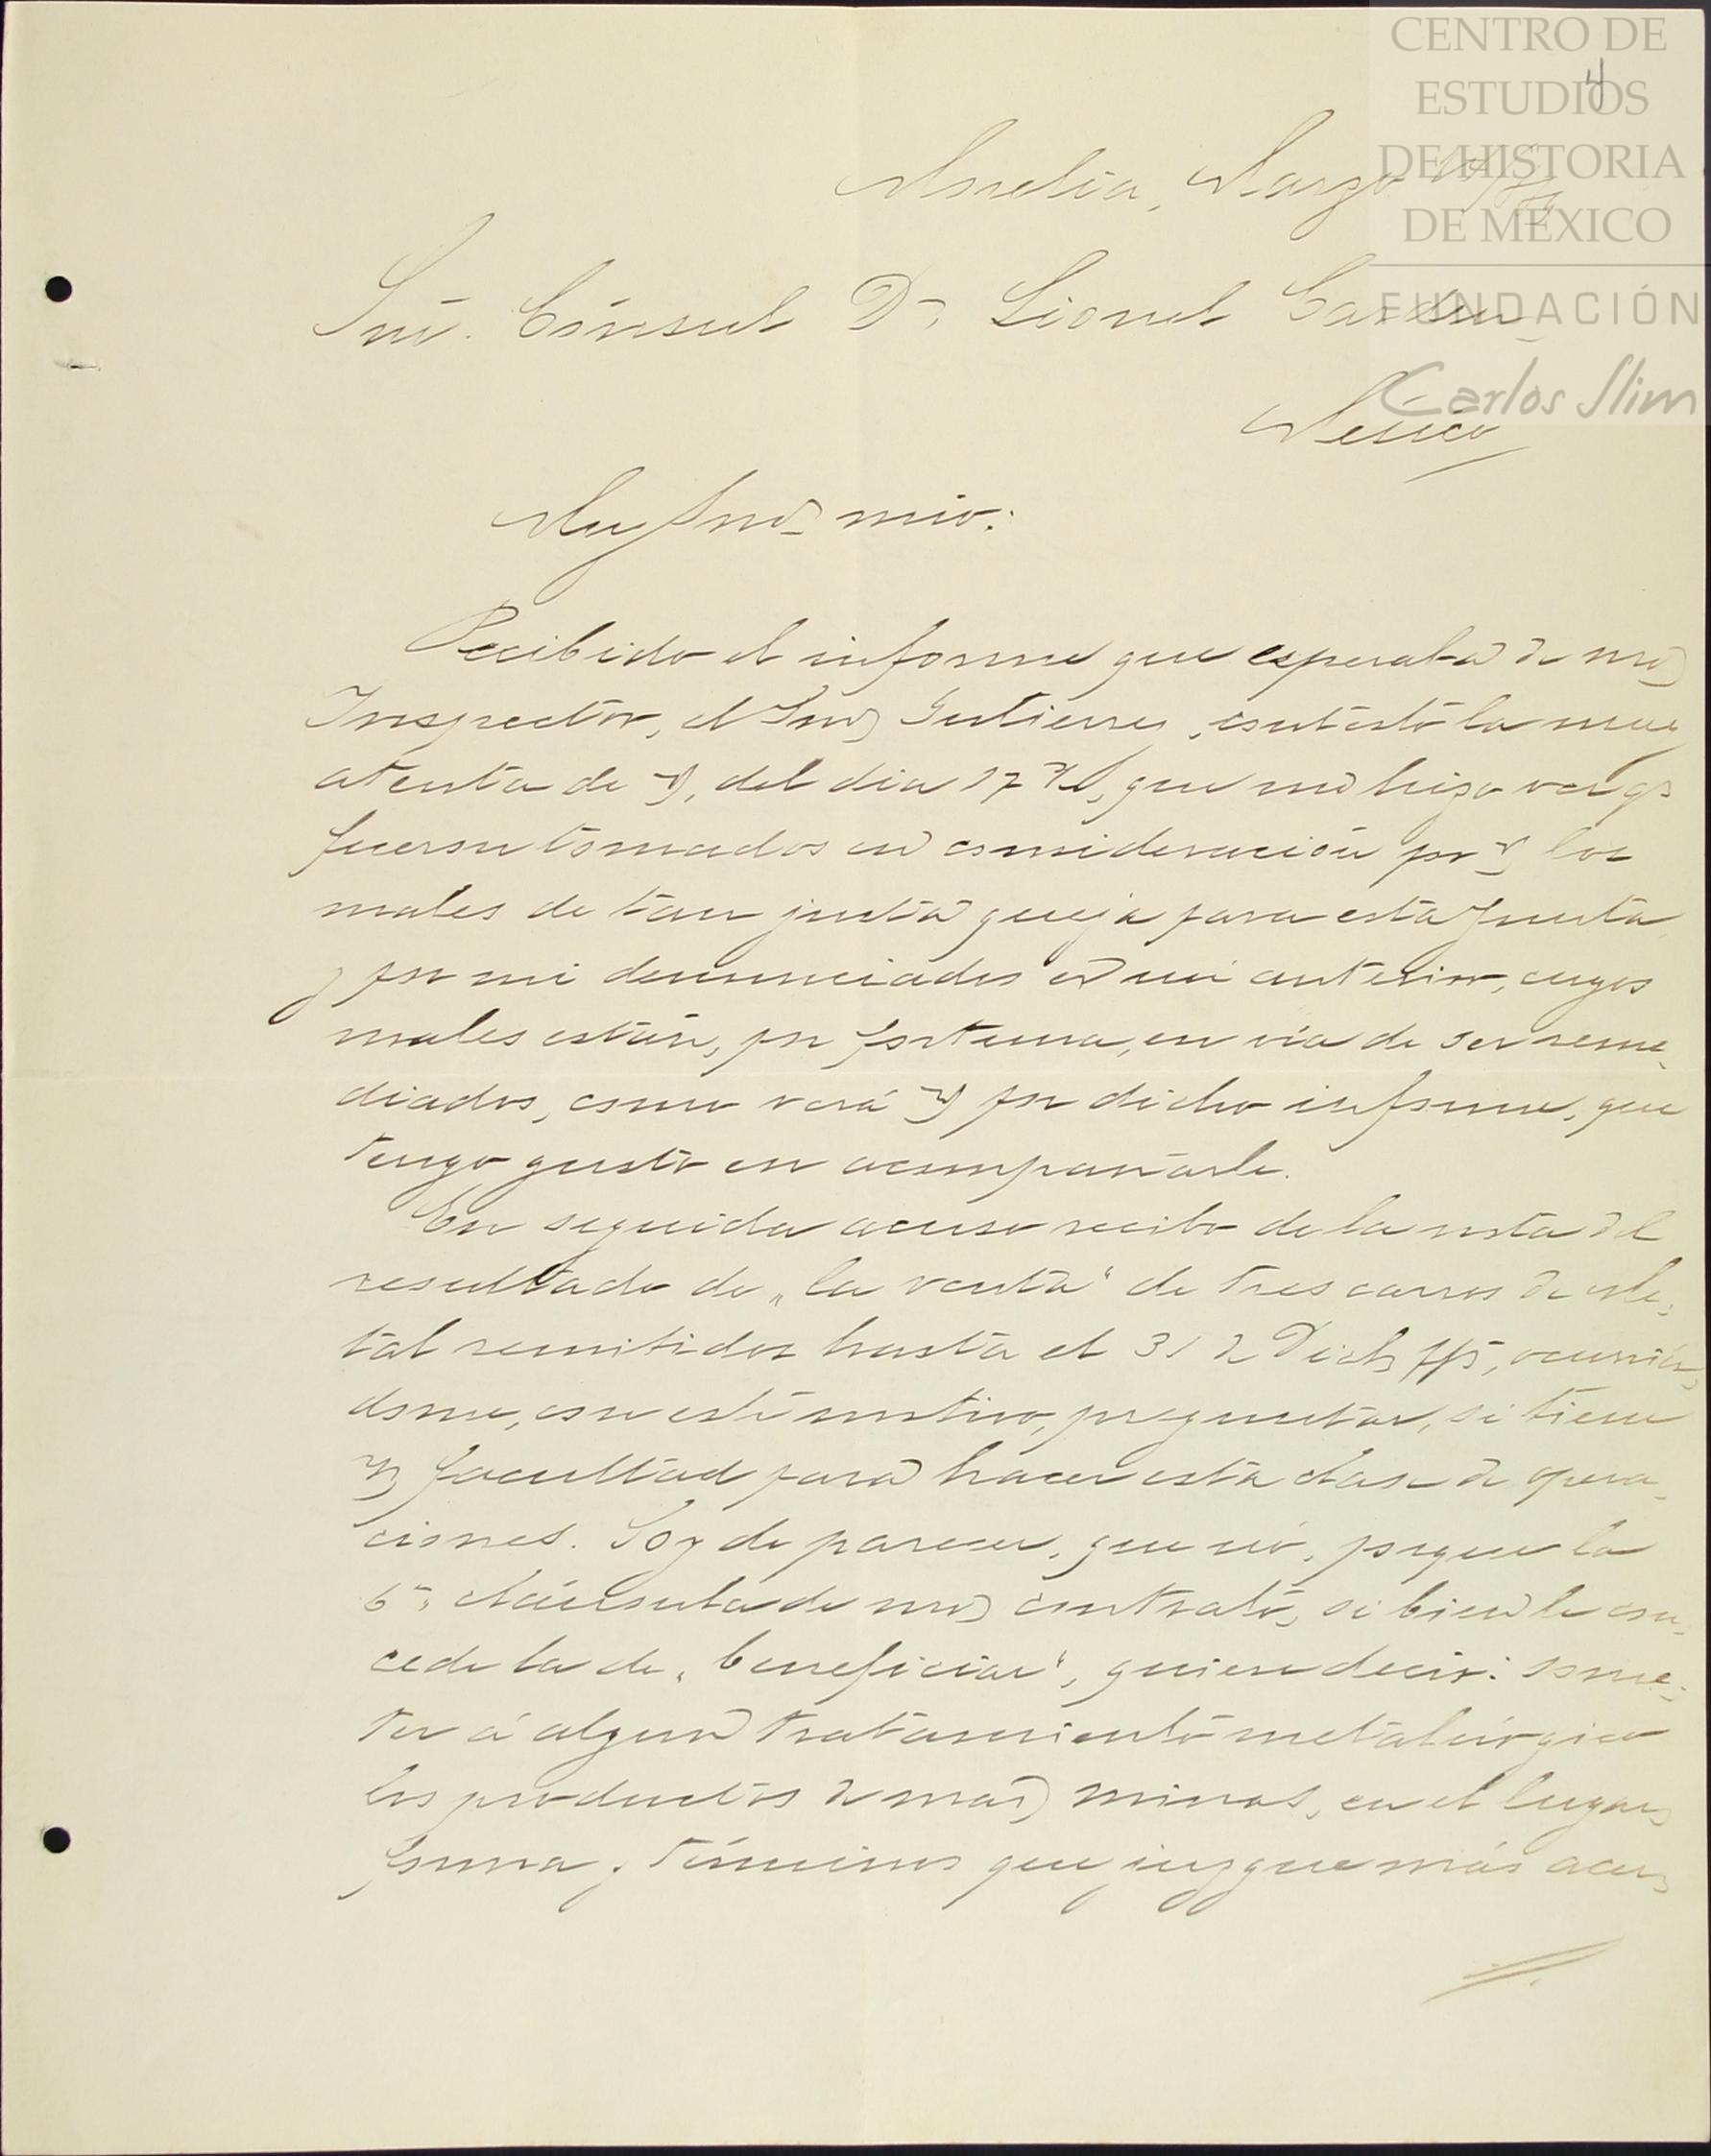 CENTRO DE
ESTUDIOS
DE HISTORIA
DE MÉXICO
FUNDACIÓN
Carlos Slim
4
Morelia, Marzo
Snr. Cónsul Dn. Lionel Carden
México
Muy Snr mio:
Recibido el informe que esperaba de nro
Inspector, el Snr Gutierrez, contesto la muy
atenta de V, del dia 17 , que me hizo ver qe
fueron tomados en consideración pr V los
males de tan justa queja para esta Junta
y por mi denunciados en mi anterior, cuyos
males están, por fortuna, en via de ser reme-
diados, como verá V por dicho informe, que
tengo gusto en acompañarle.
En seguida acuso recibo de la nota del
resultado de "la venta" de tres carros de Me-
tal remitidos hasta el 31 de Dicbe , ocurrién-
dome, con este motivo, preguntar, si tiene
V facultad para hacer esta clase de opera-
ciones. Soy de parecer, que nó, porque la
6a. cláusula de nro contrato, si bien le con-
cede la de "beneficiar", quiere decir: some-
ter á algun tratamiento metalúrgico
los productos de nras minas, en el lugar,
forma y términos que juzgue más acer-